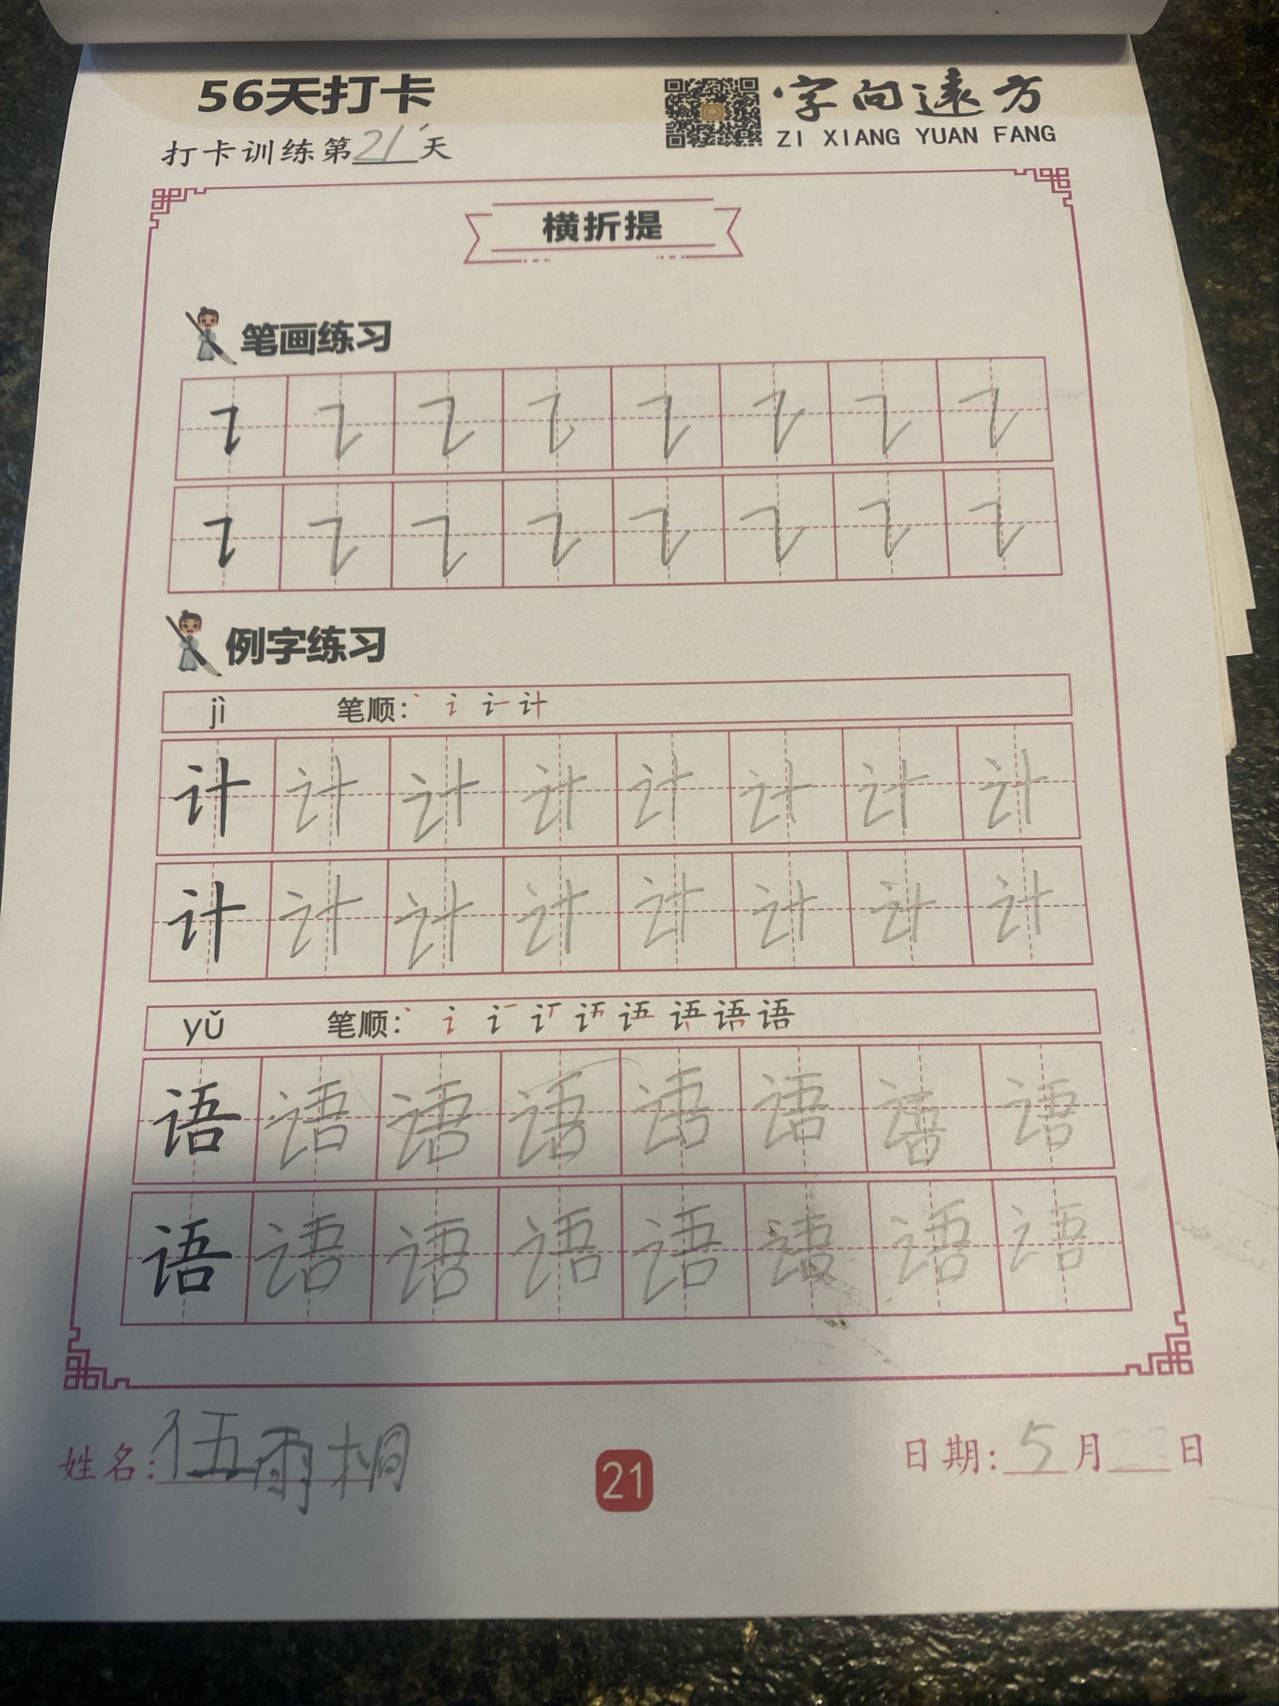 56天打卡
字向遠方
ZI XIANG YUAN FANG
打卡训练第21天
横折提
笔画练习
例字练习
jì 笔顺: 丶 讠 计
计 计 计 计 计 计 计 计
计 计 计 计 计 计 计 计
yǔ 笔顺: 丶 讠 语 语
语 语 语 语 语 语 语 语
语 语 语 语 语 语 语 语
姓名: 伍雨桐
21
日期: 5月22日